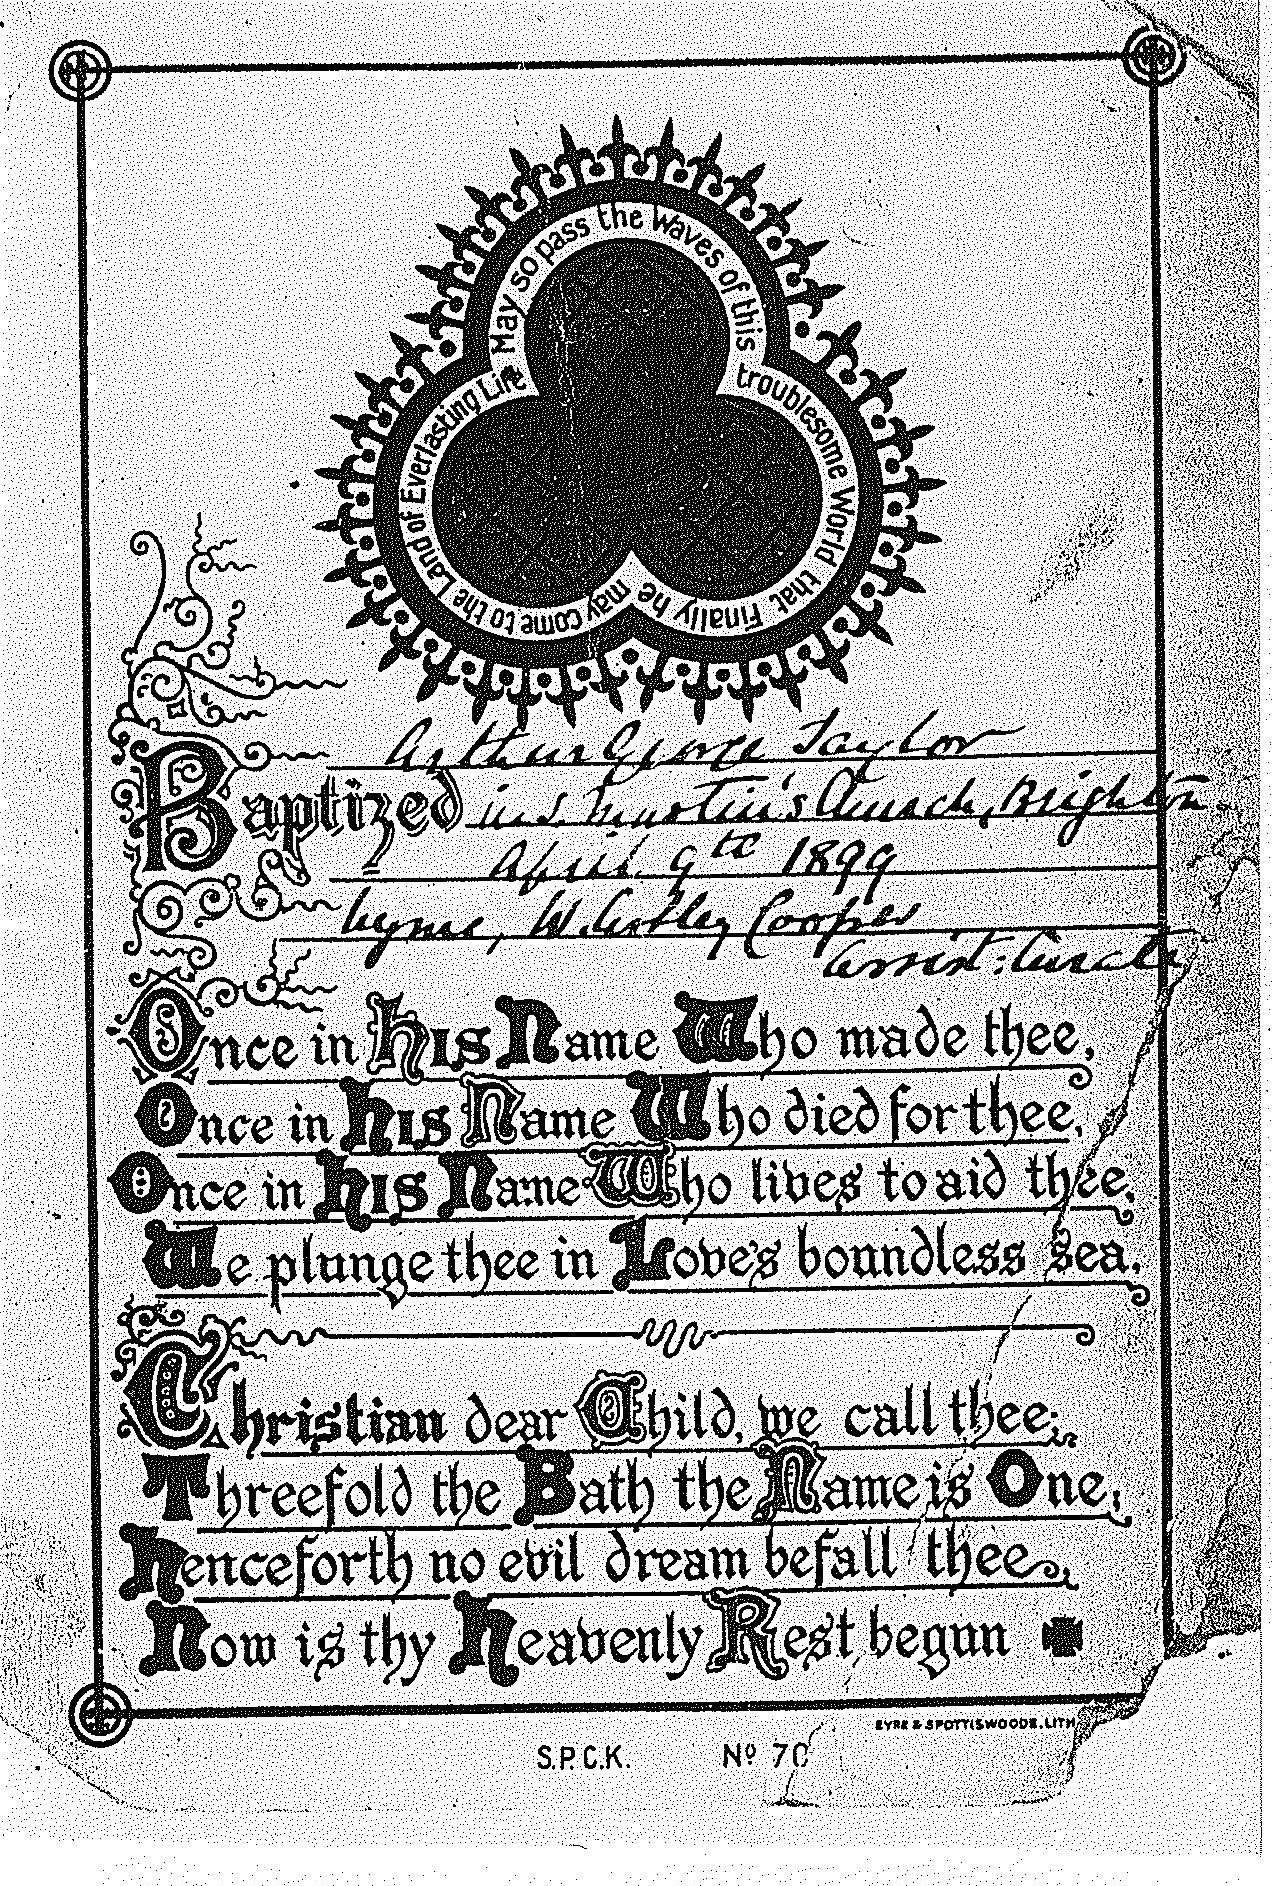 May so pass the Waves of this troublesome World that finally he may come to the Land of Everlasting Life
Arthur George Taylor
Baptized in S. Martin's Church, Brighton
April 9th 1899
by me, W. Astley Cooper
Assist: Curate
Once in His Name Who made thee,
Once in His Name Who died for thee,
Once in His Name Who lives to aid thee,
We plunge thee in Love's boundless sea.
Christian dear Child, we call thee;
Threefold the Bath the Name is One;
Henceforth no evil dream befall thee,
Now is thy Heavenly Rest begun
EYRE & SPOTTISWOODE. LITH
S.P.C.K. No 70